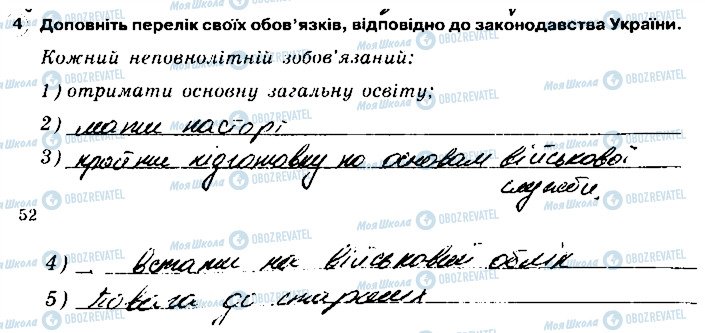 4) Доповніть перелік своїх обов'язків, відповідно до законодавства України.
Кожний неповнолітній зобов'язаний:
1) отримати основну загальну освіту;
2) мати паспорт
3) пройти підготовку по основам військової
служби,
52
4) встати на військовий облік
5) Повага до старших